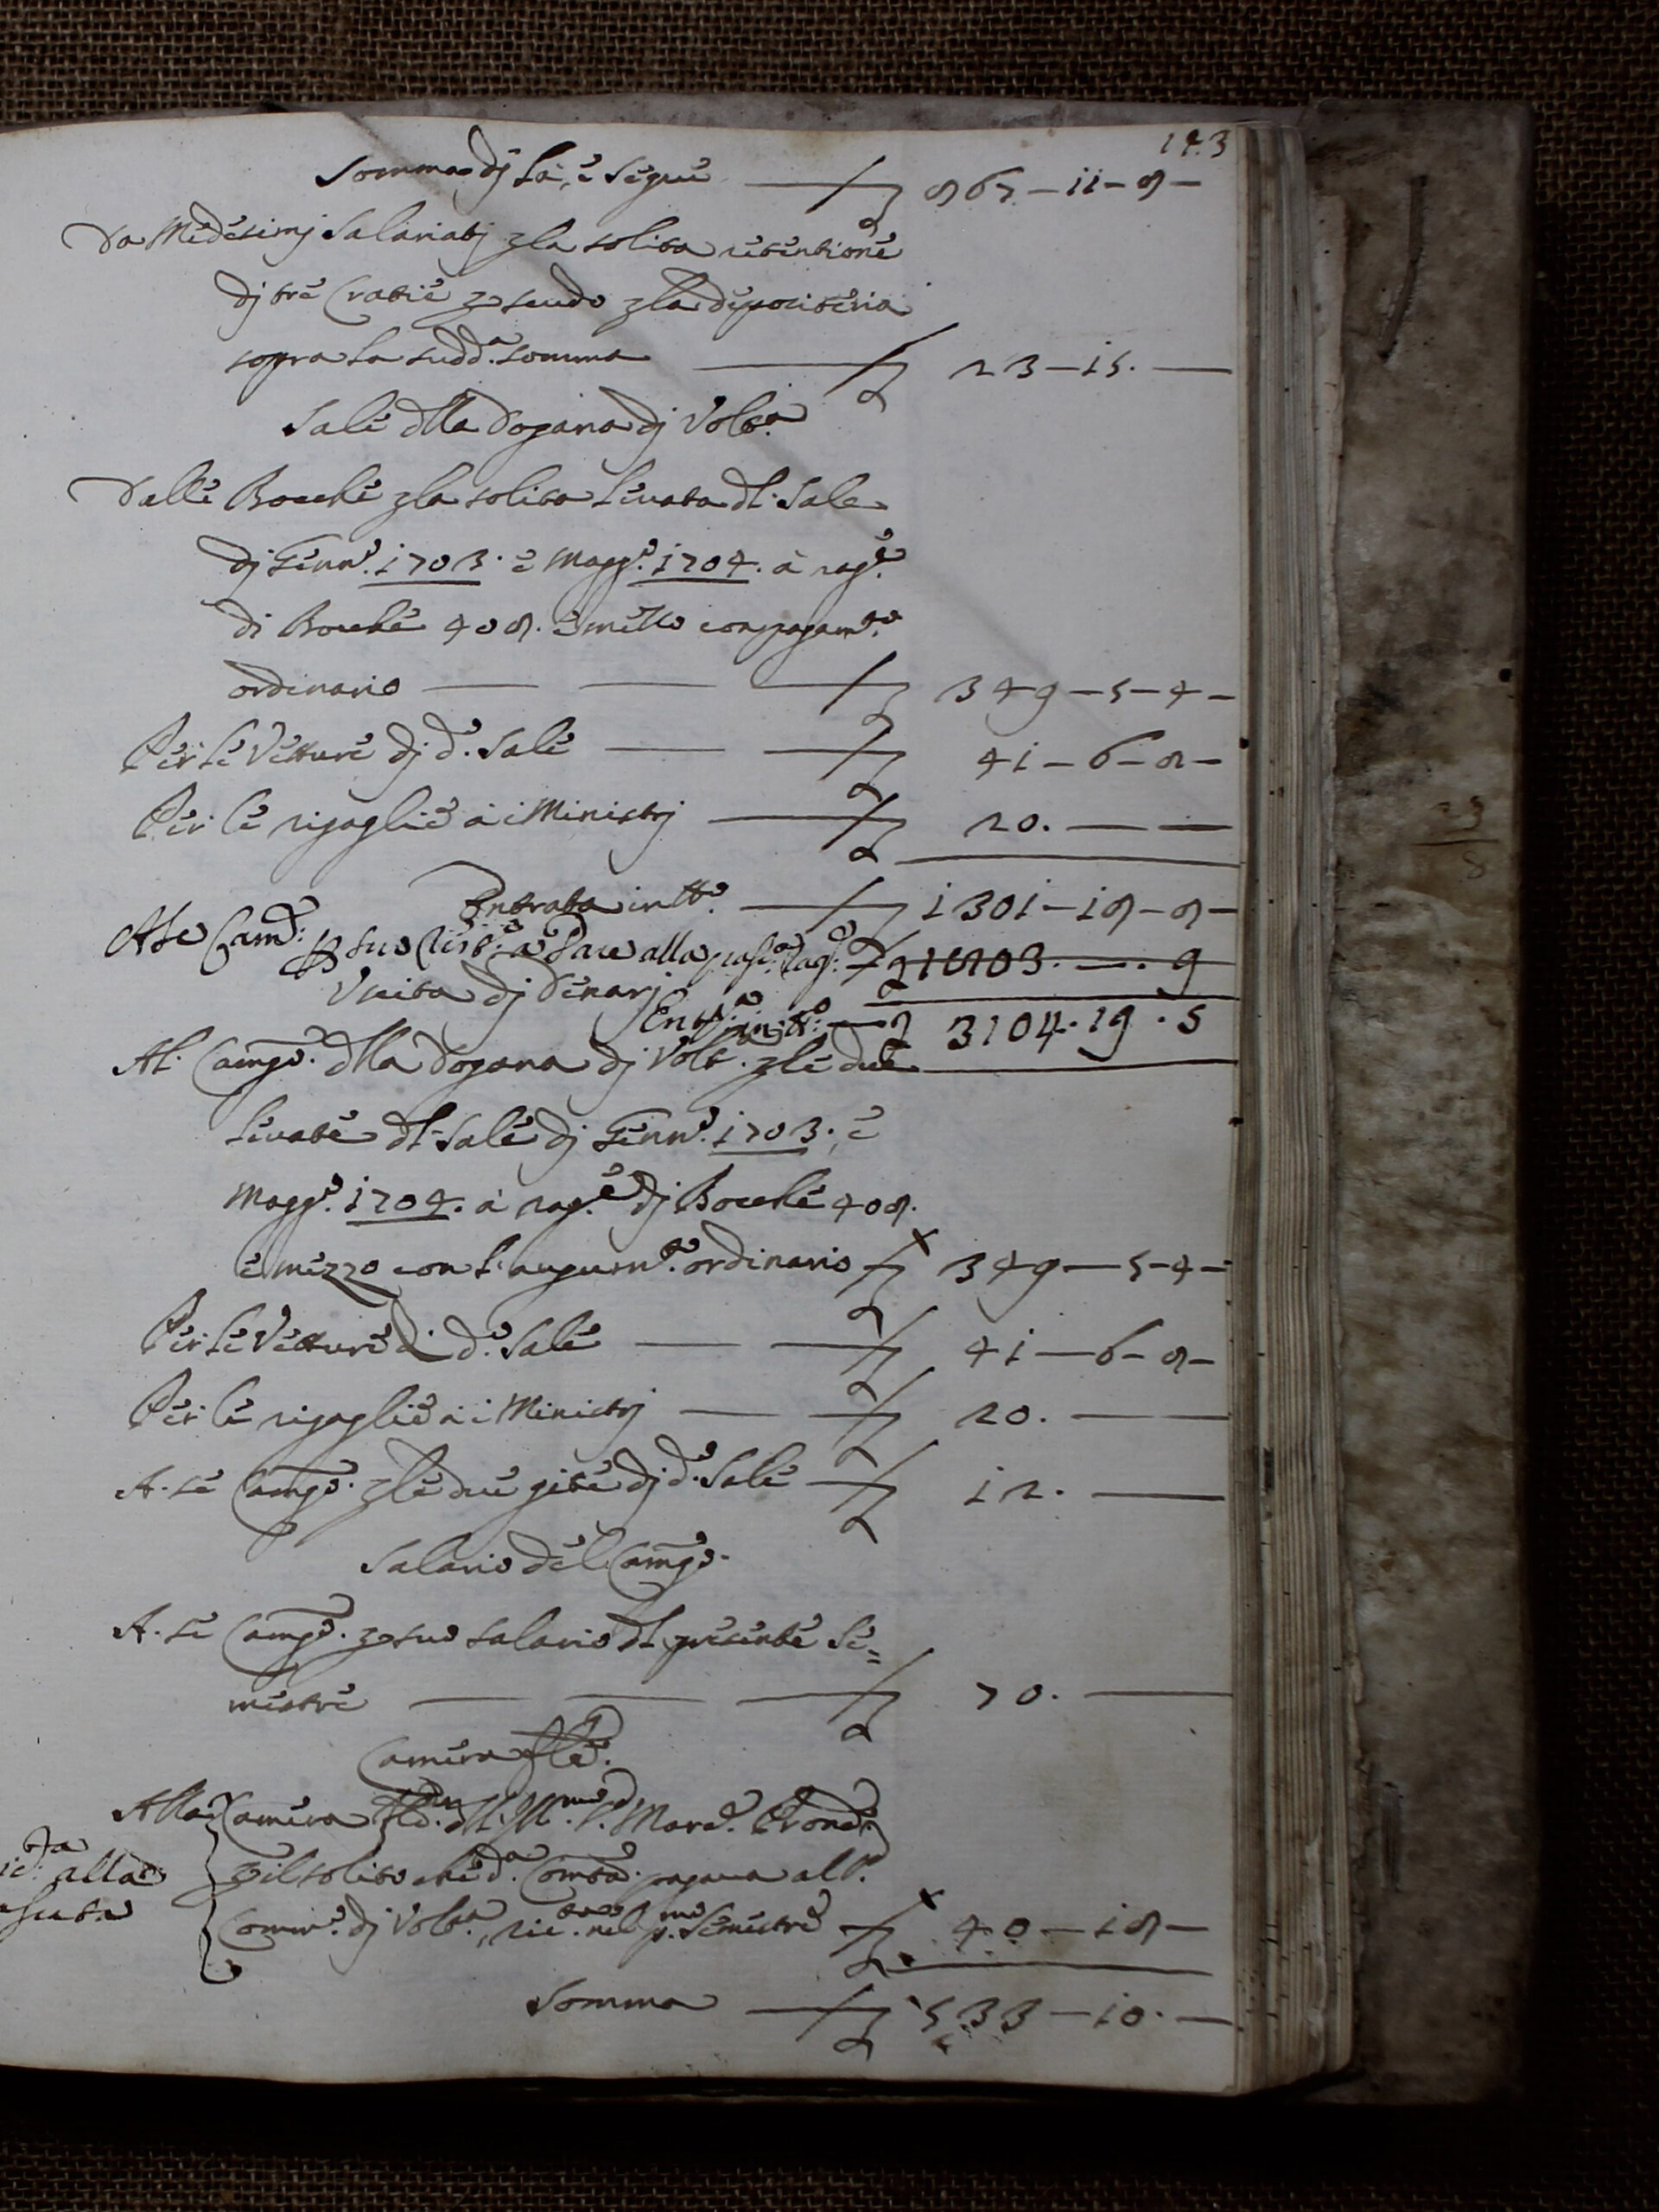 143
Somma dj là, è segue — £ 867 – 11 – 8 –
Da Medesimj Salariatj p la solita retentione
dj tre Cratie p scudo p la depositeria
sopra la sudd.a somma — £ 23 – 15. —
Sale dlla Dogana dj Volt.a
Dalle Bocche p la solita Levata dl Sale
dj Genn.o 1703. è Magg.o 1704. à rag.e
di Bocche 408. è mezzo con pagam.to
ordinario — — — £ 349 – 5 – 4 –
Per le Vetture dj d.o Sale — — £ 41 – 6 – 8 –
Per le rigaglie à i Ministrj — £ 20. — —
Entrata in tt.o — £ 1301 – 18 – 8 –
A Se Cam.o p suo à Dare alla pass.a Rag.e £ 1803. —. 9
Uscita dj Denarj
Ent.a in t.o — £ 3104. 19. 5
Al Camgo. dlla Dogana dj Volt. p le due
Levate dl Sale dj Genn.o 1703., è
Magg.o 1704. à rag.e dj Bocche 408.
è mezzo con l'augum.to ordinario £ 349 — 5 – 4 –
Per le Vetture di d.o Sale — — £ 41 — 6 – 8 –
Per le rigaglie à i Ministrj — — £ 20. — —
A. se Camgo. p le due gite dj d.o Sale — £ 12. —
Salario del Camgo.
A. se Camgo. p suo salario dl presente Se=
mestre — — — £ 70. —
Camera fle.
Alla Camera Marc.
p il solito che d.a Com.tà pagava all'
alla
Comm.o dj Volt.a, nel p.mo Semestre £ 40 – 18 –
Somma — £ 533 – 10. —